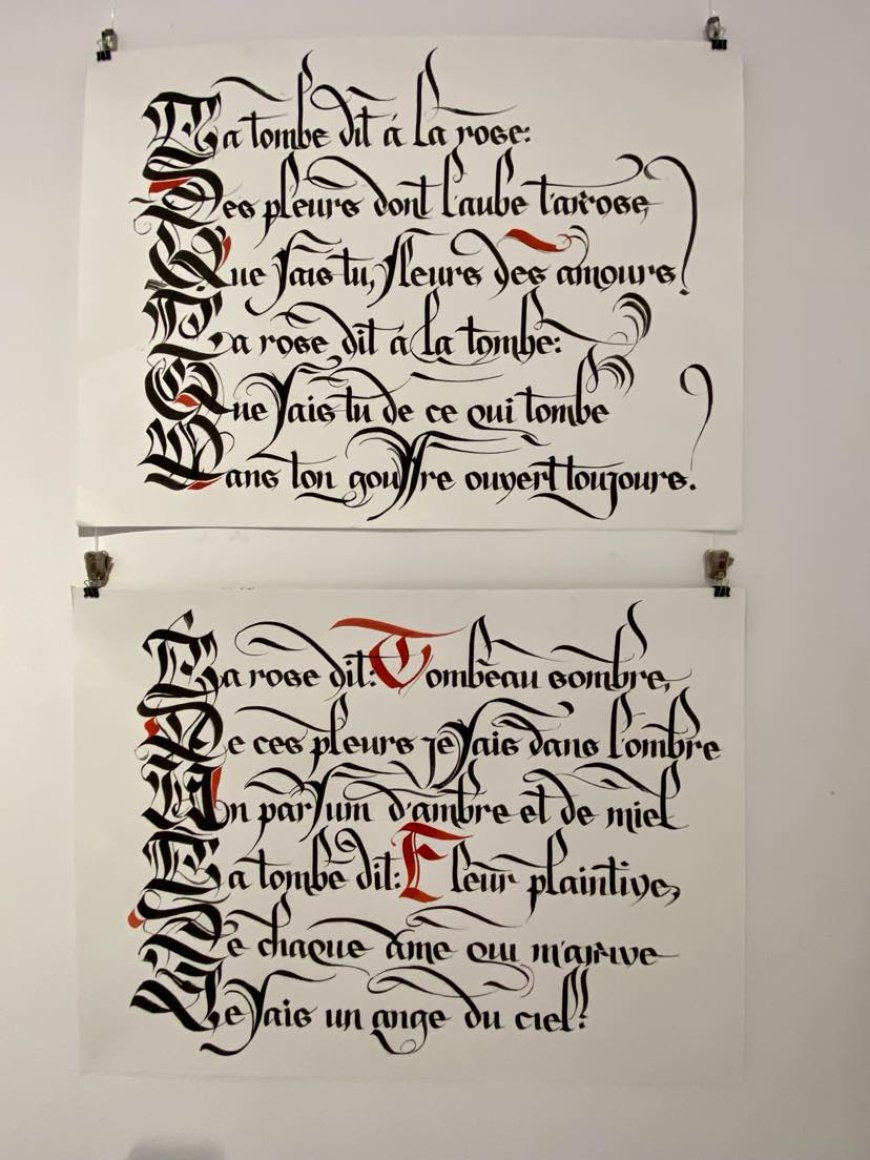 La tombe dit à la rose:
Des pleurs dont l'aube t'arrose
Que fais tu, fleurs des amours?
La rose dit à la tombe:
Que fais tu de ce qui tombe
Dans ton gouffre ouvert toujours?
La rose dit: Tombeau sombre,
De ces pleurs je fais dans l'ombre
Un parfum d'ambre et de miel
La tombe dit: Fleur plaintive,
De chaque âme qui m'arrive
Je fais un ange du ciel!